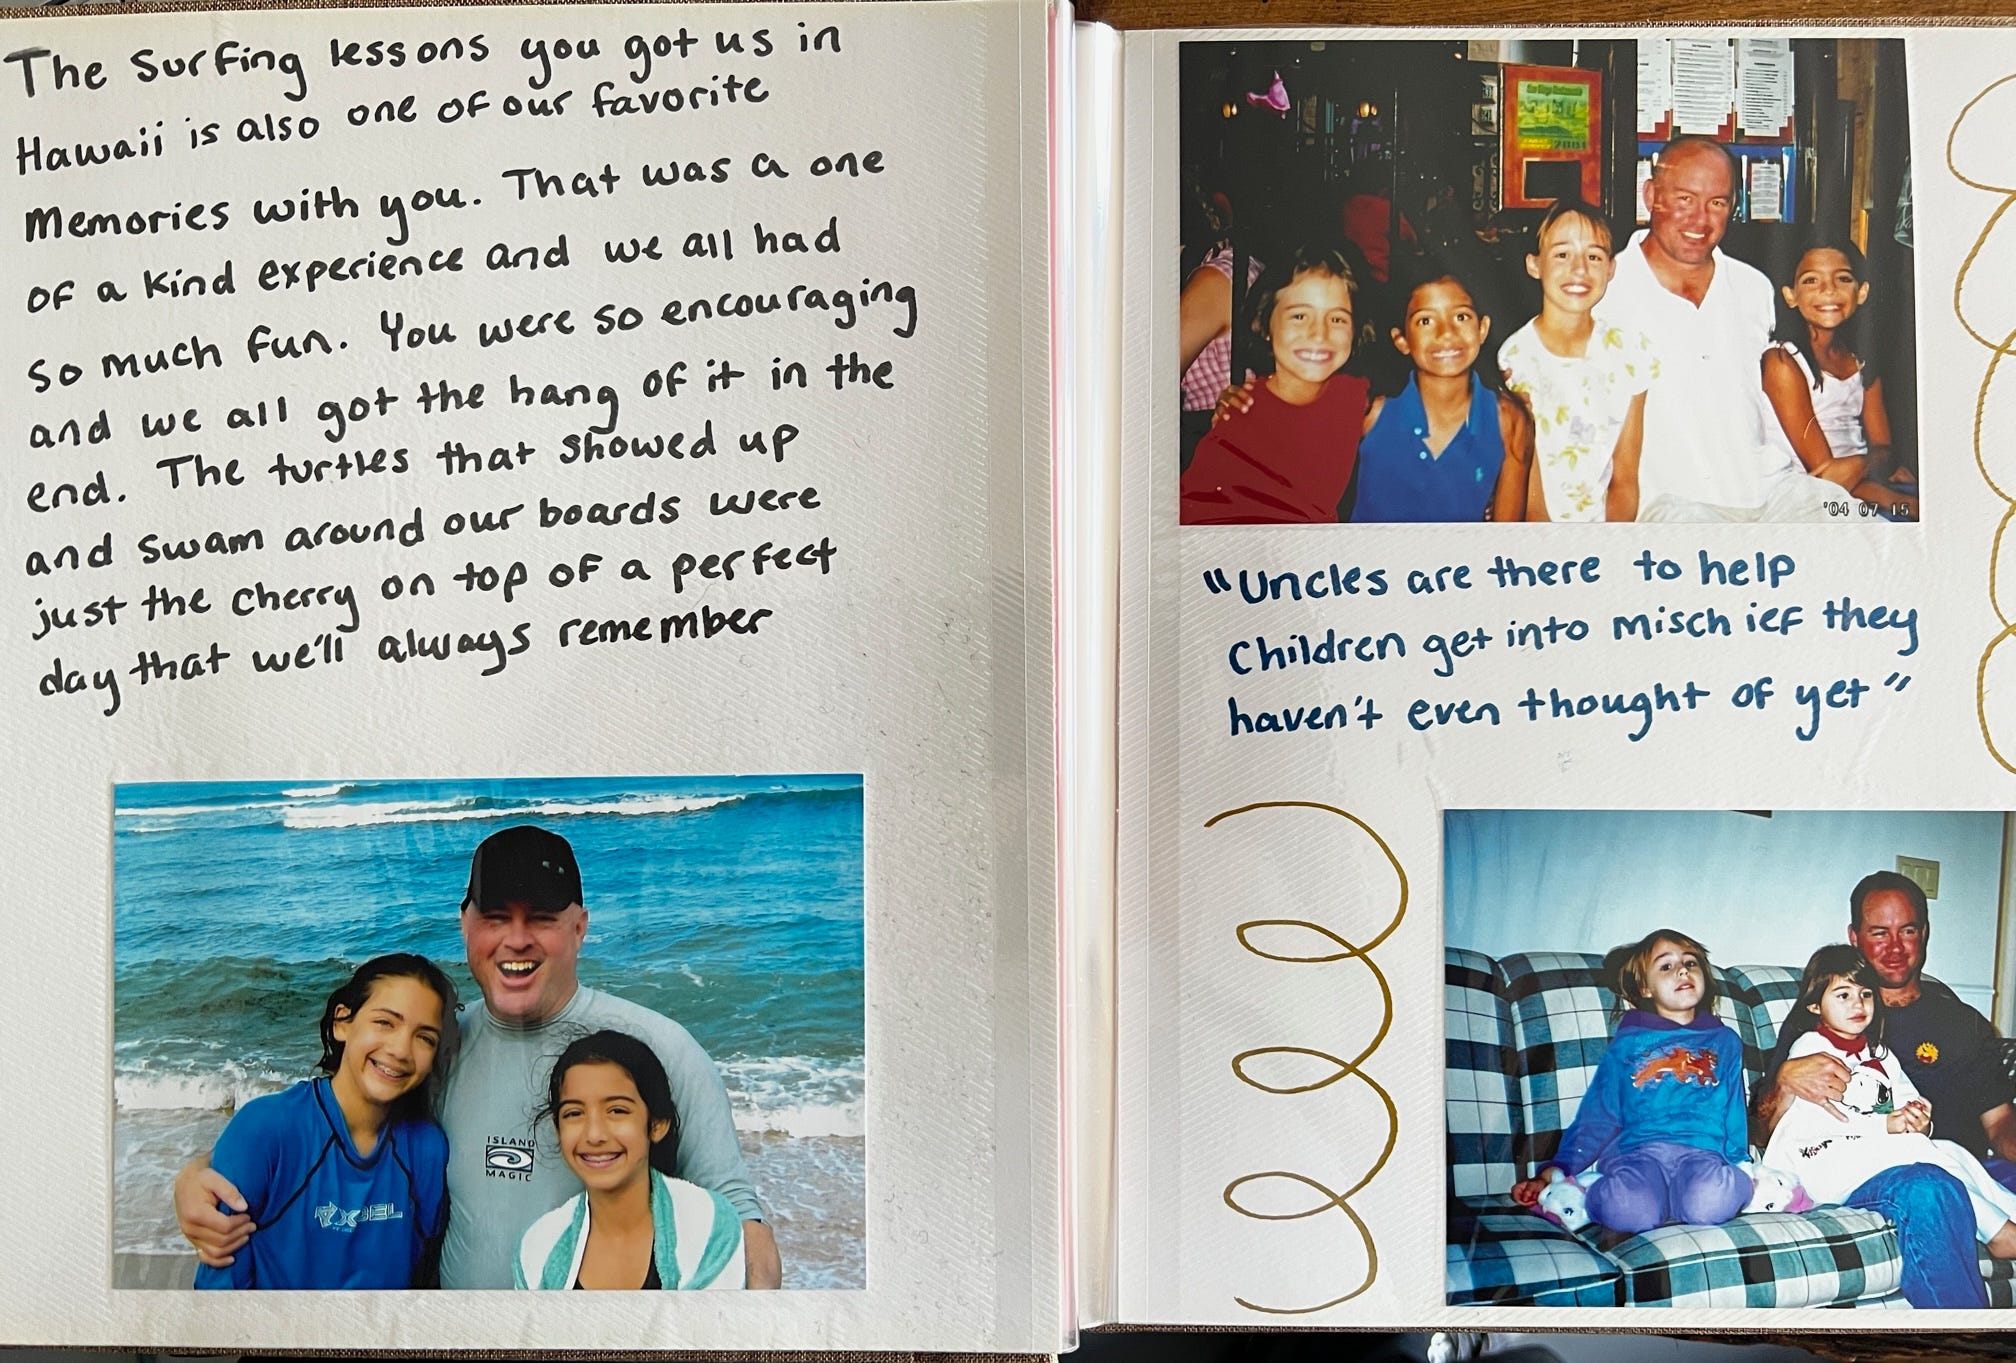 The Surfing lessons you got us in
Hawaii is also one of our favorite
Memories with you. That was a one
of a kind experience and we all had
so much fun. You were so encouraging
and we all got the hang of it in the
end. The turtles that showed up
and swam around our boards were
just the cherry on top of a perfect
day that we'll always remember
ISLAND
MAGIC
'04 07 15
"Uncles are there to help
Children get into mischief they
haven't even thought of yet"